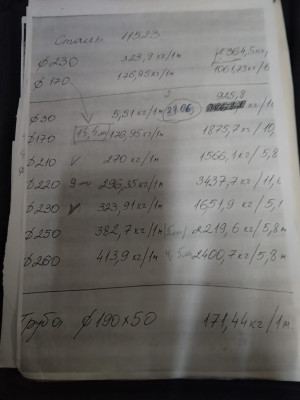 Сталь 11523
ф230 323,9 кг/1м 2364,5кг
ф170 126,95 кг/1м 1061,23кг/6
925,8
ф30 5,51 кг/1м 27.06
ф170 15,5м 126,95 кг/1м 1875,7 кг/10,
ф210 v 270 кг/1м 1566,1 кг/5,8
ф220 9м 296,35кг/1м 3437,7 кг/11,6
ф230 v 323,91кг/1м 1651,9 кг/5,1
ф250 382,7кг/1м 2219,6 кг/5,8м
ф260 413,9 кг/1м 2400,7кг/5,8м
Труба ф190х50 171,44кг/1м